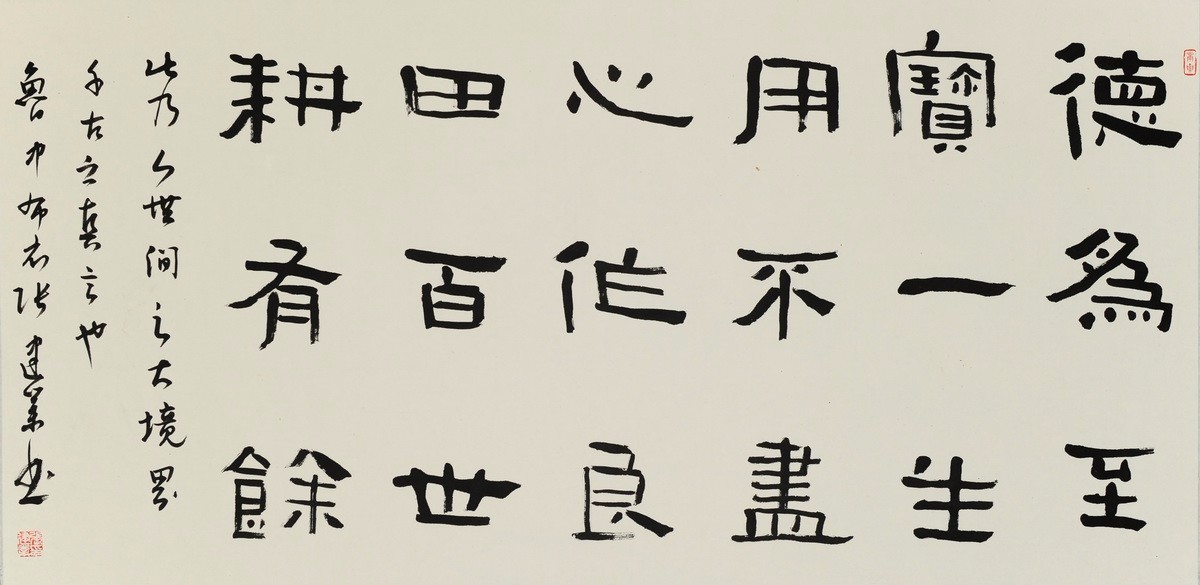 德為至
寶一生
用不盡
心作良
田百世
耕有餘
此乃人世间之大境界
千古之真言也
魯中布衣张建業书